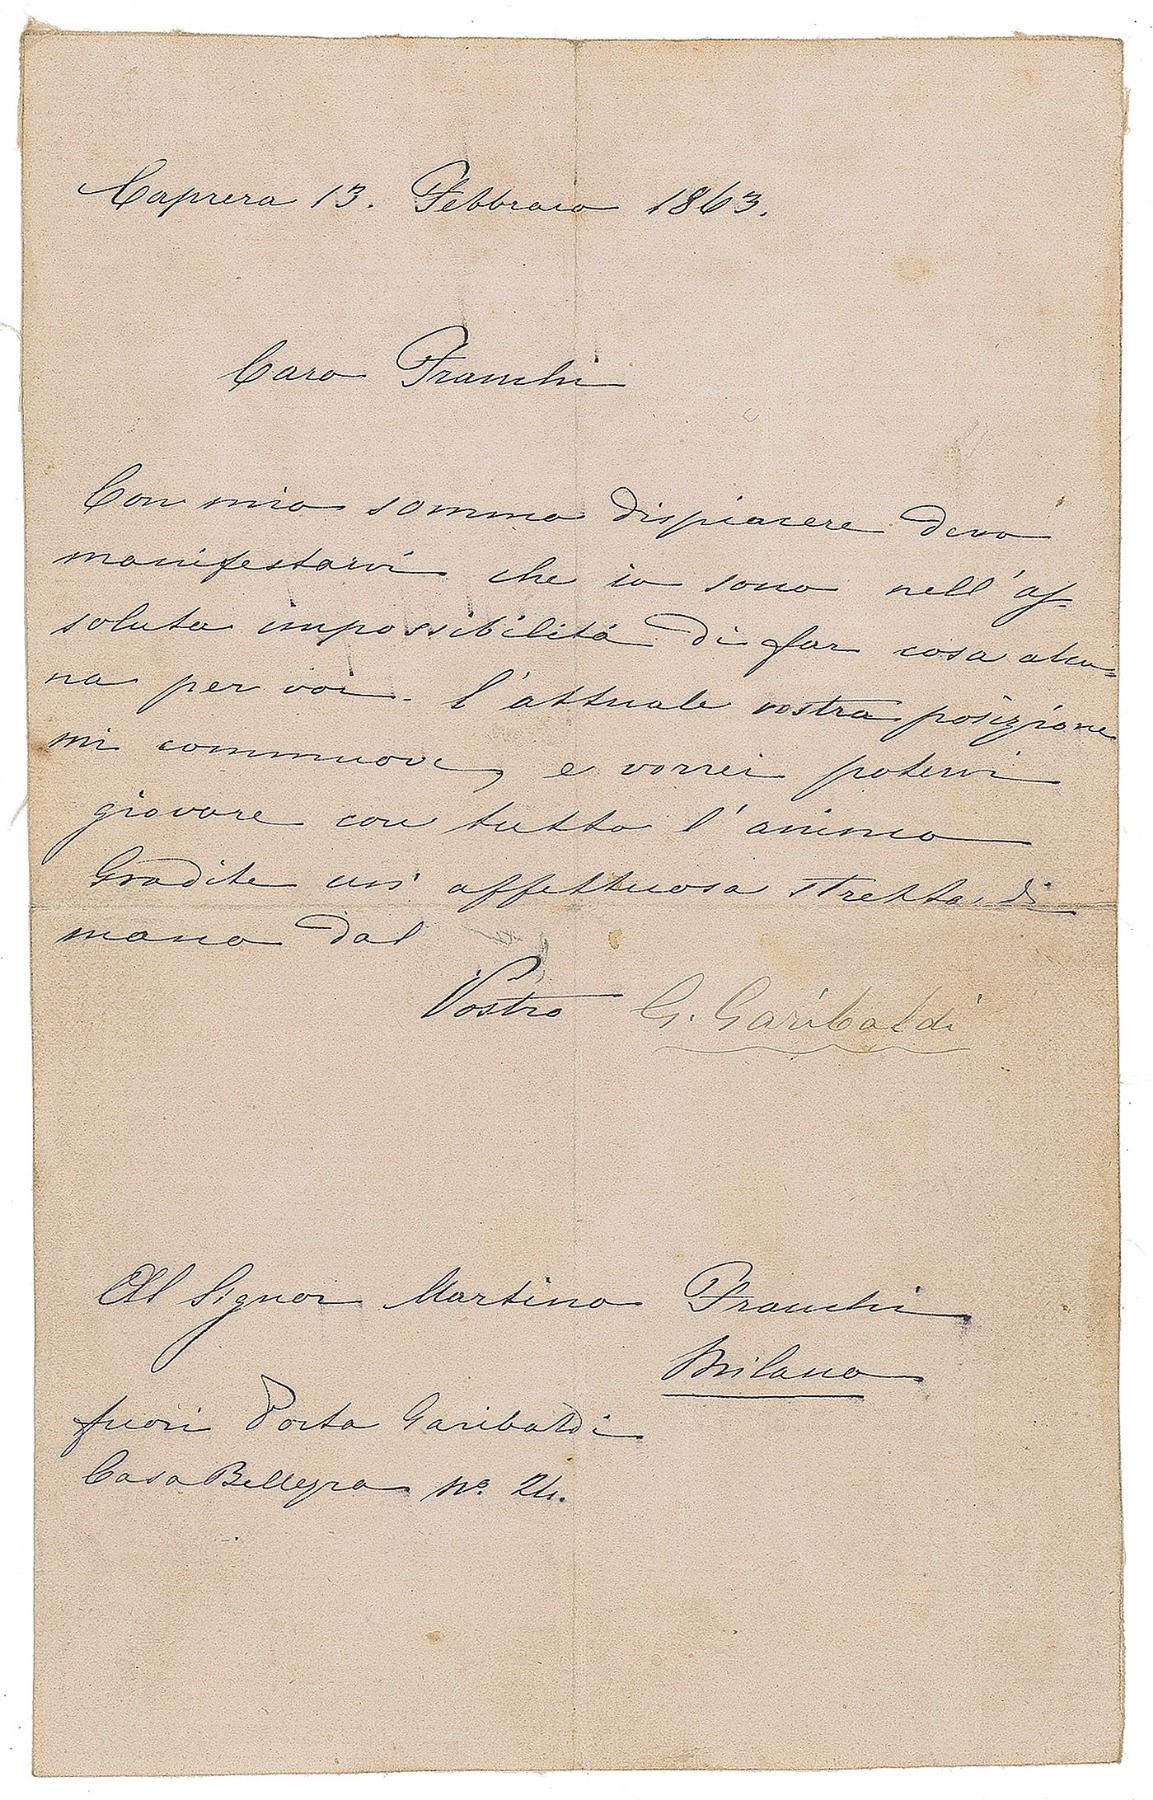 Caprera 13. Febbraio 1863.
Caro Franchi
Con mio sommo dispiacere devo
manifestarvi che io sono nell'as-
soluta impossibilità di far cosa alcu=
na per voi. L'attuale vostra posizione
mi commuove, e vorrei potervi
giovare con tutto l'animo
Gradite un' affettuosa stretta di
mano dal
Vostro G. Garibaldi
Al Signor Martino Franchi
Milano
fuori Porta Garibaldi
Casa Bellegra No. 24.